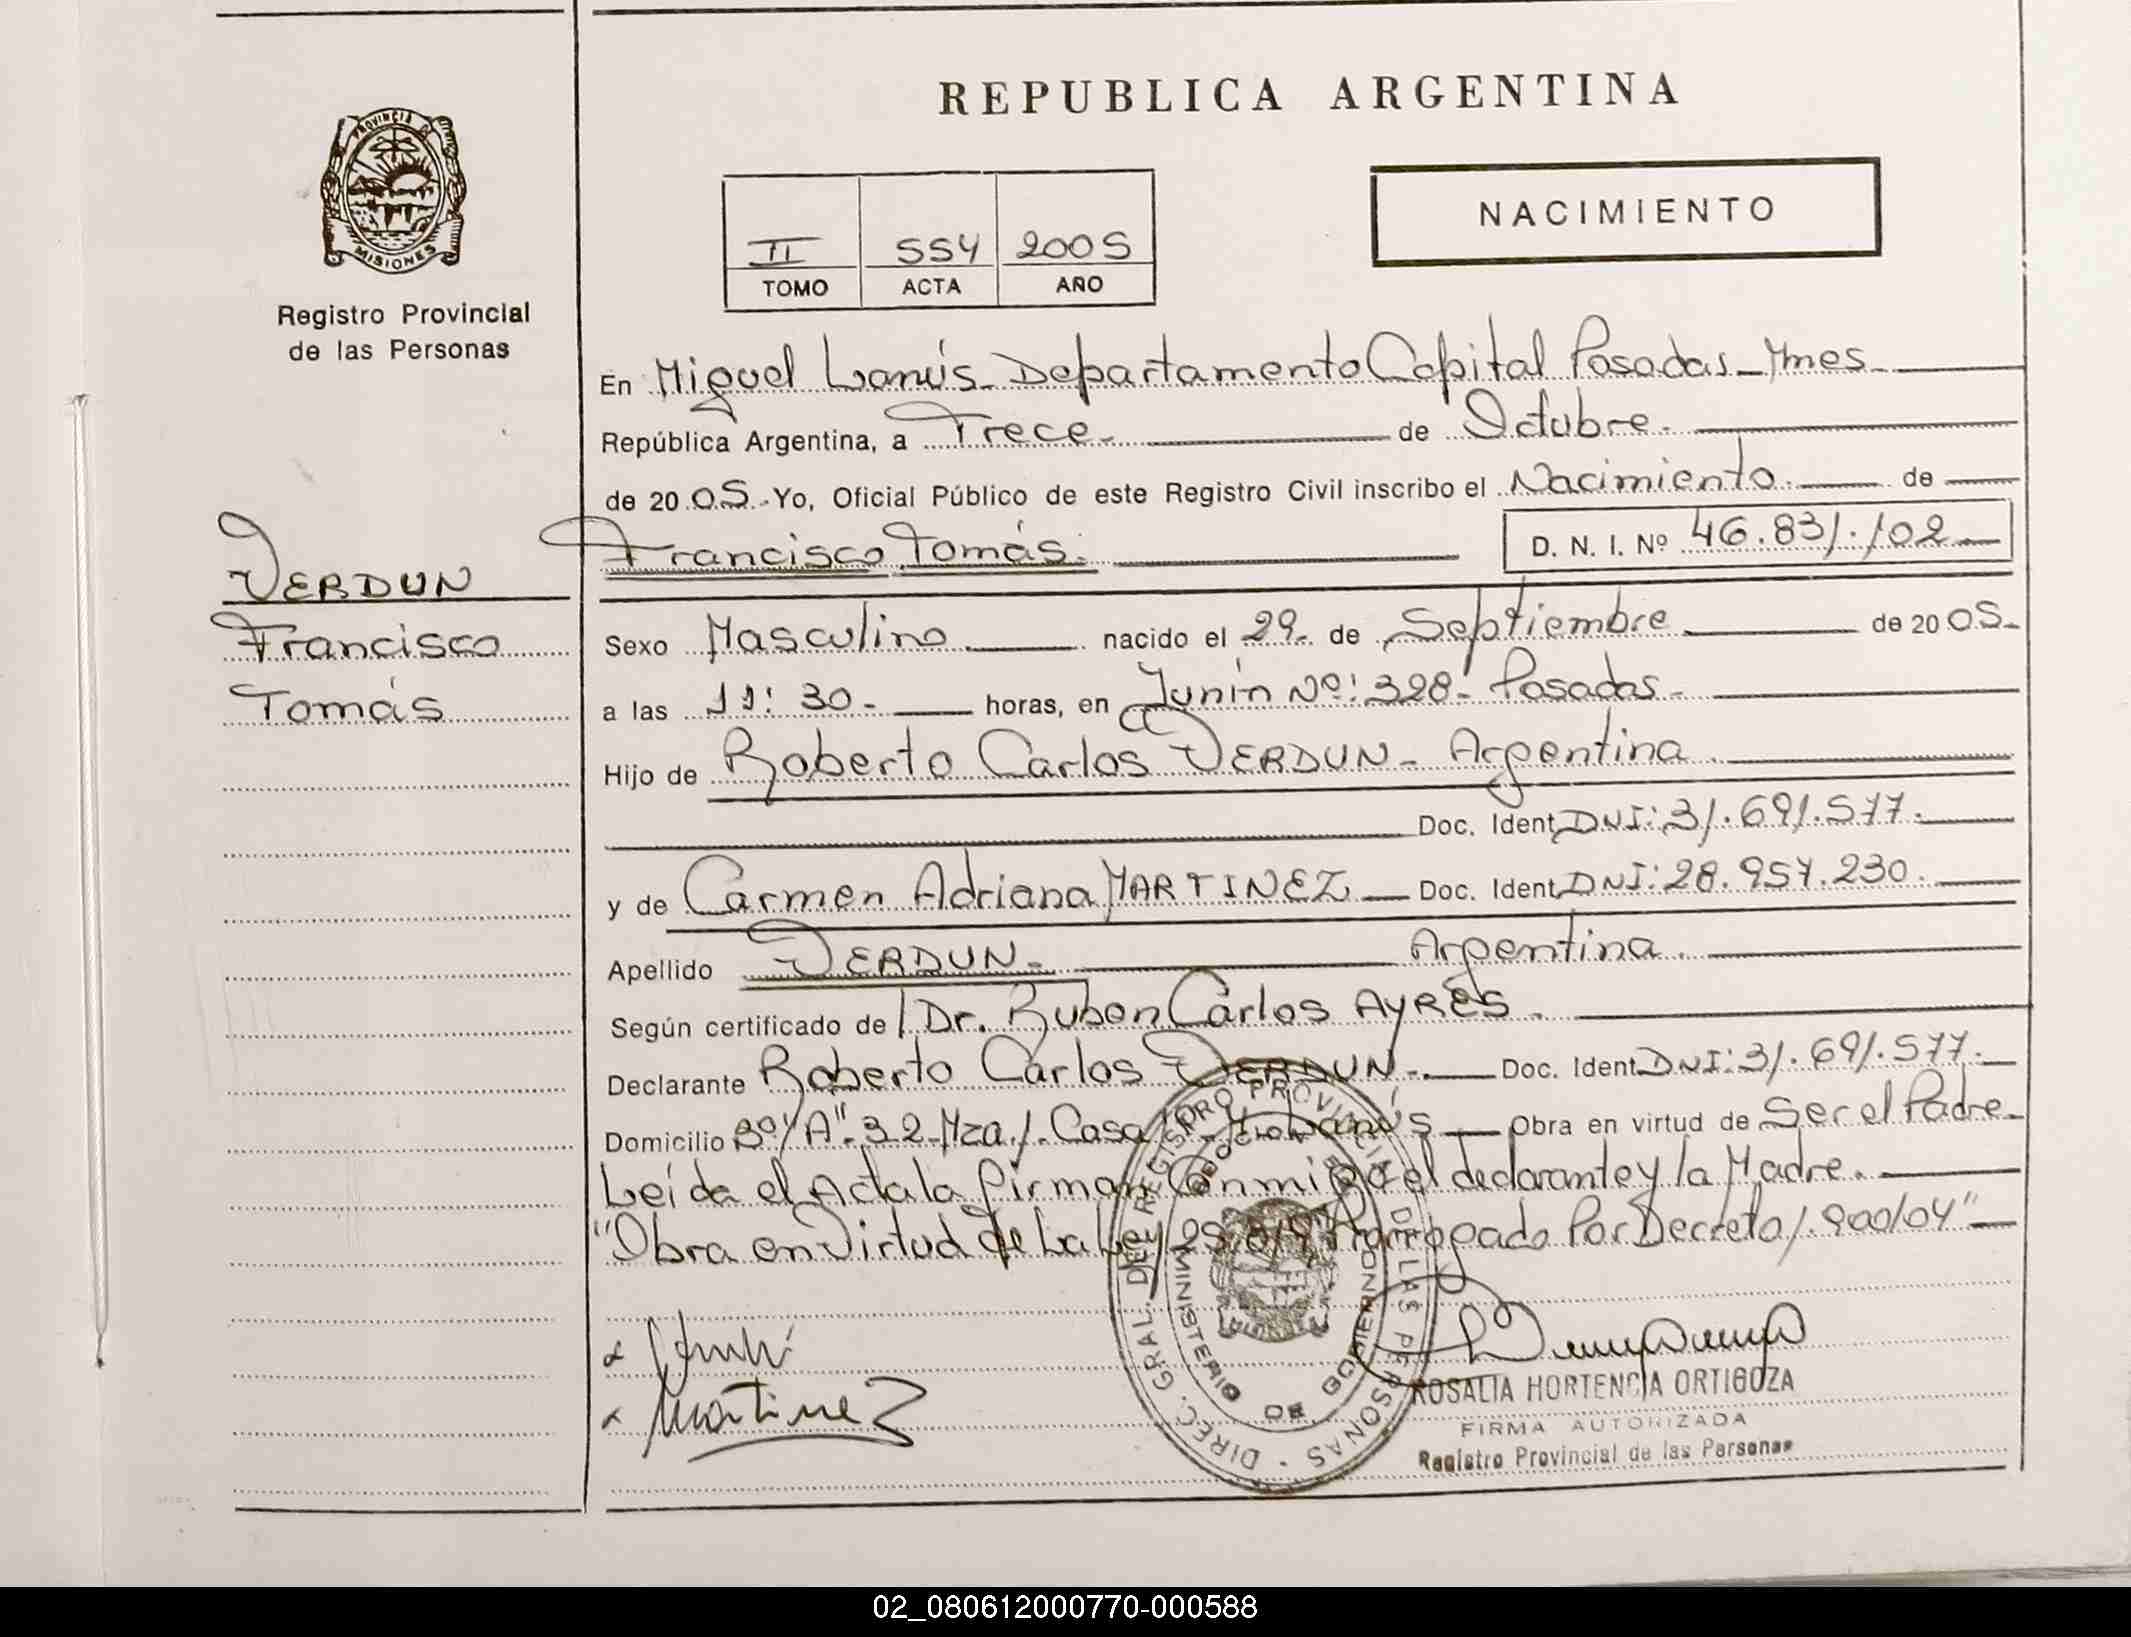 REPUBLICA ARGENTINA
PROVINCIA DE
MISIONES
Registro Provincial
de las Personas
II 554 2005
TOMO ACTA AÑO
NACIMIENTO
En Miguel Lanús - Departamento Capital Posadas - Mnes -
República Argentina, a Trece - de Octubre -
de 2005 - Yo, Oficial Público de este Registro Civil inscribo el Nacimiento - de
Francisco Tomás - D. N. I. Nº 46.831.102 -
VERDUN
Francisco
Tomás
Sexo Masculino - nacido el 29 - de Septiembre de 2005 -
a las 11:30 - horas, en Junín Nº: 328 - Posadas -
Hijo de Roberto Carlos VERDUN - Argentina -
Doc. Ident DNI: 31.691.577 -
y de Carmen Adriana MARTINEZ - Doc. Ident DNI: 28.957.230 -
Apellido VERDUN - Argentina -
Según certificado de / Dr. Ruben Carlos AYRES -
Declarante Roberto Carlos VERDUN - Doc. Ident DNI: 31.691.577 -
Domicilio Bº "A" - 32 - Mza /. Casa Lanús - Obra en virtud de Ser el Padre -
Leída el Acta la firman Conmigo el declarante y la Madre -
"Obra en Virtud de La Ley Prorrogado Por Decreto 1.900/04" -
Martinez
DIREC. GRAL. DEL REGISTRO PROVINCIAL DE LAS PERSONAS
MINISTERIO DE GOBIERNO
ROSALIA HORTENCIA ORTIGOZA
FIRMA AUTORIZADA
Registro Provincial de las Personas
02_080612000770-000588